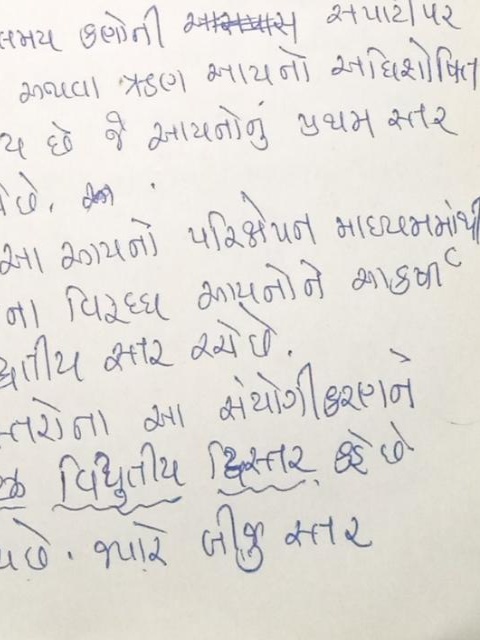 સમય કણોની સપાટી પર
અથવા ઋણ આયનો અધિશોષિત
ય છે જે આયનોનું પ્રથમ સ્તર
છે.
આ આયનો પરિક્ષેપન માધ્યમમાંથી
ના વિરુધ્ધ આયનોને આકર્ષી
દ્વિતીય સ્તર રચે છે.
સ્તરોના આ સંયોગીકરણને
વિદ્યુતીય દ્વિસ્તર કહે છે
ય છે. જ્યારે બીજુ સ્તર